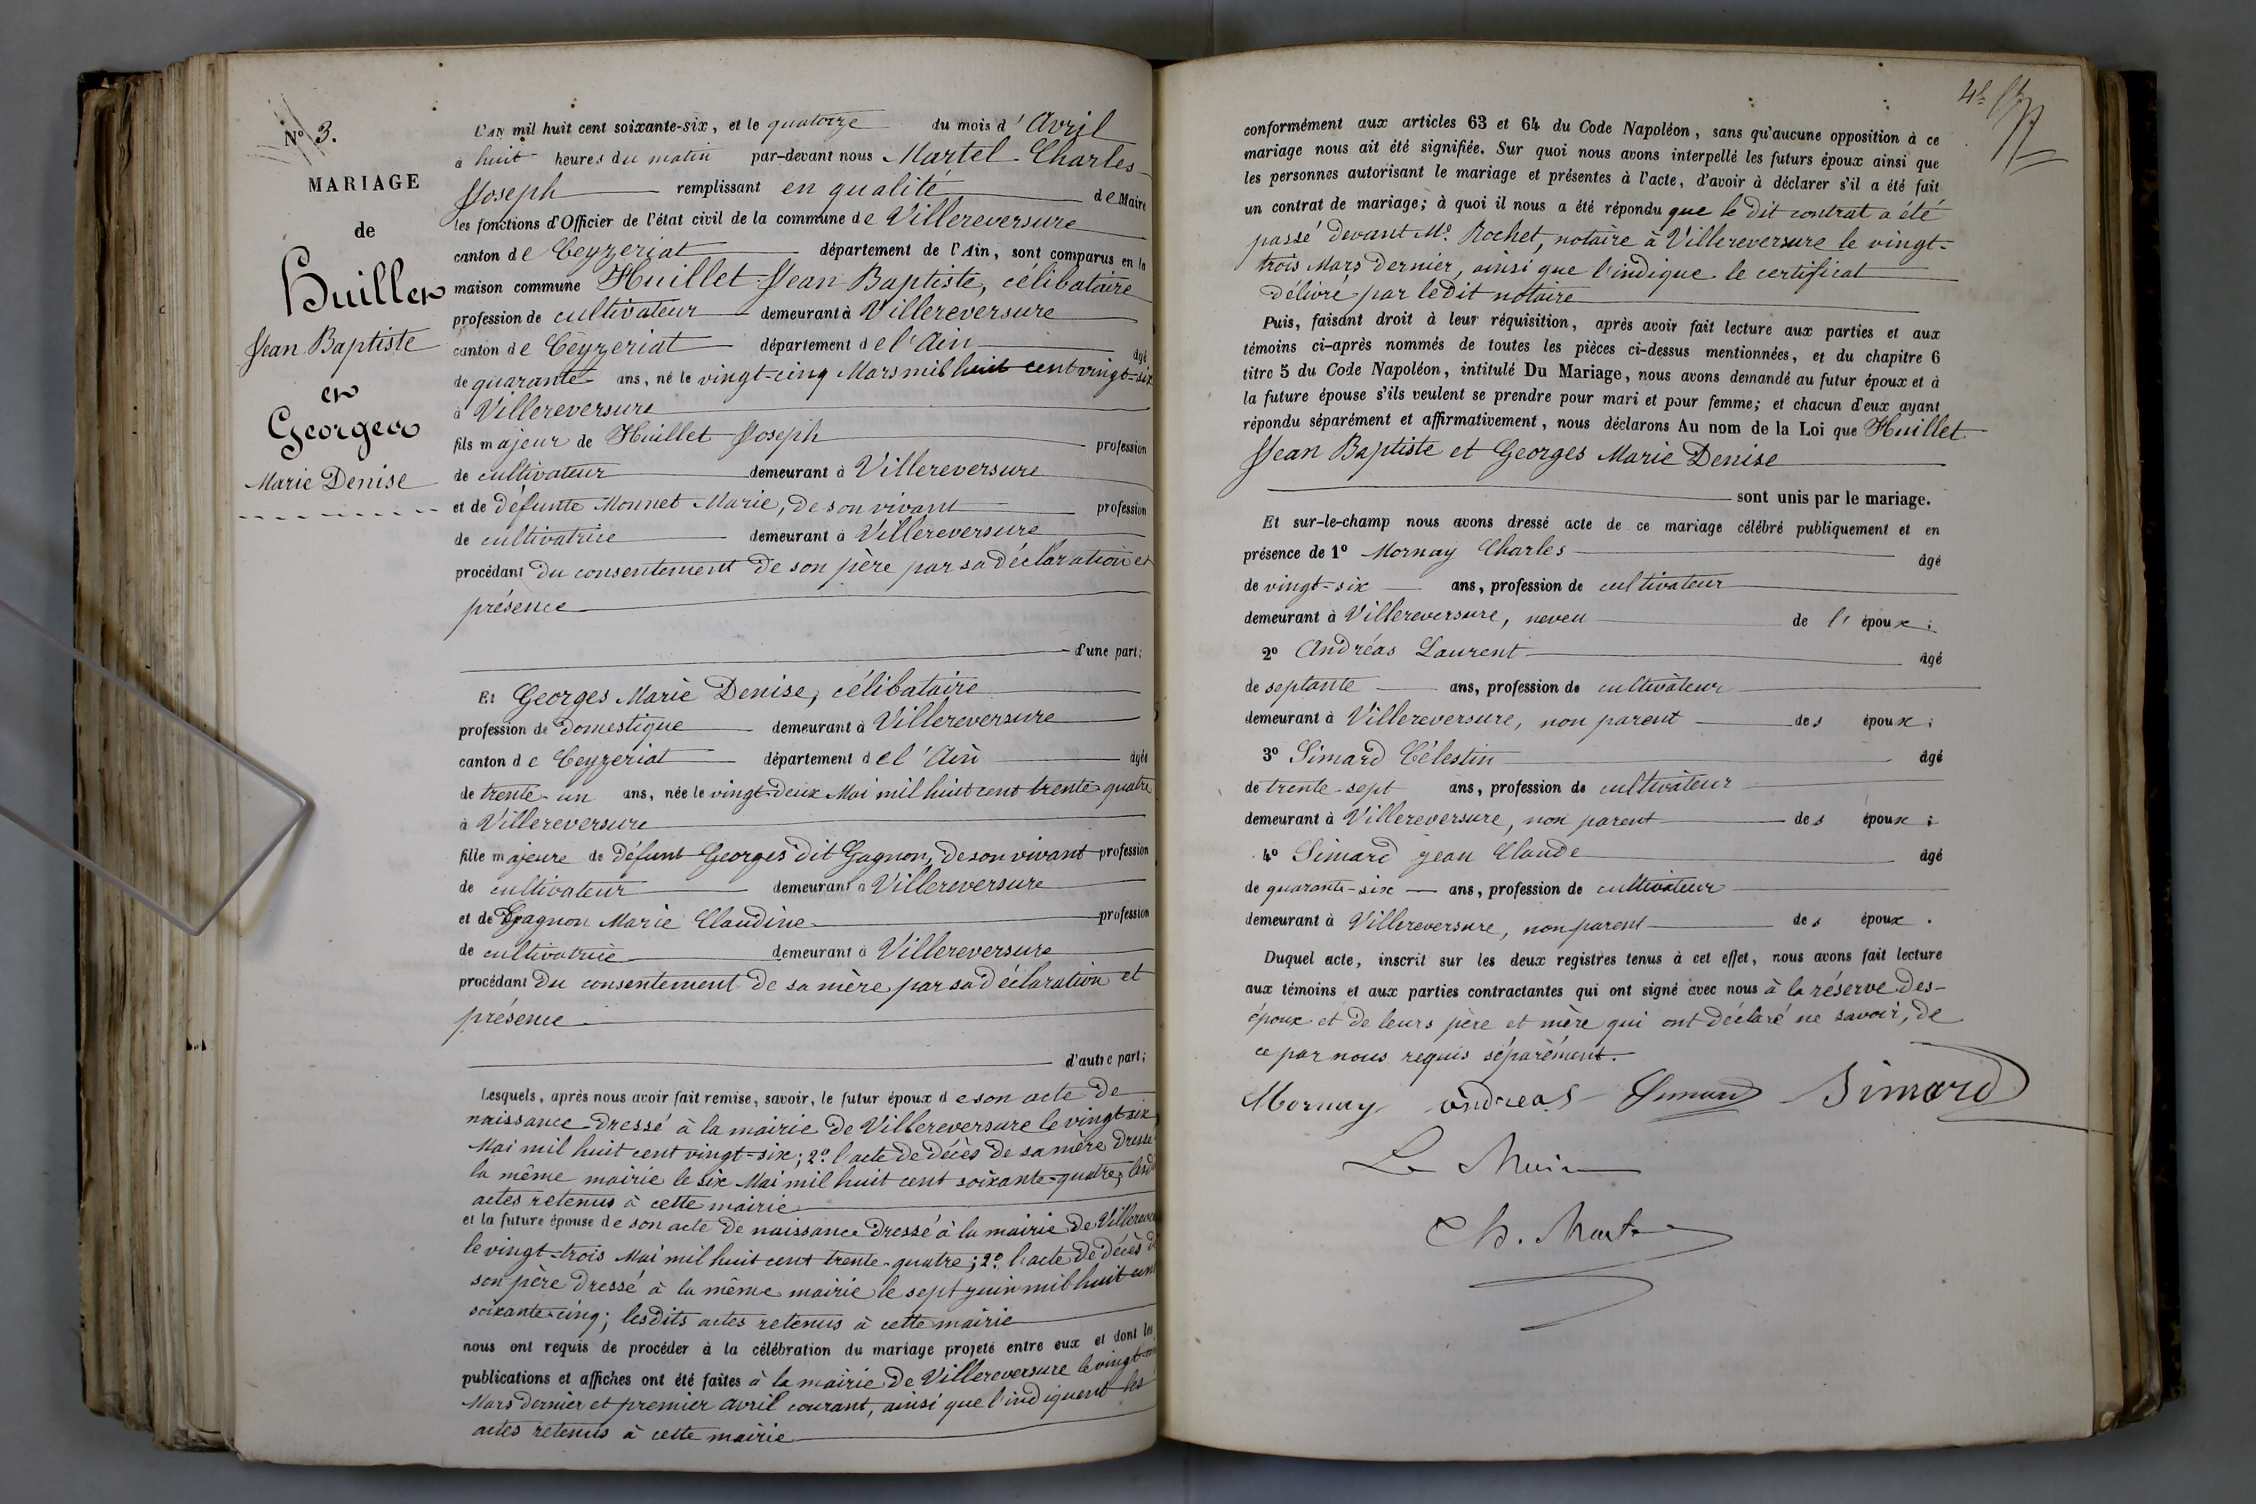 N° 3.
MARIAGE
de
Huillet
Jean Baptiste
et
Georges
Marie Denise
L'AN mil huit cent soixante-six, et le quatorze du mois d'Avril
à huit heures du matin par-devant nous Martel Charles
Joseph remplissant en qualité de Maire
les fonctions d'Officier de l'état civil de la commune de Villereversure
canton de Ceyzeriat département de l'Ain, sont comparus en la
maison commune Huillet Jean Baptiste, célibataire
profession de cultivateur demeurant à Villereversure
canton de Ceyzeriat département de l'Ain âgé
de quarante ans, né le vingt-cinq Mars mil huit cent vingt-six
à Villereversure
fils majeur de Huillet Joseph profession
de cultivateur demeurant à Villereversure
et de défunte Monnet Marie, de son vivant profession
de cultivatrice demeurant à Villereversure
procédant du consentement de son père par sa déclaration et
présence
d'une part;
Et Georges Marie Denise, célibataire
profession de domestique demeurant à Villereversure
canton de Ceyzeriat département de l'Ain âgée
de trente-un ans, née le vingt-deux Mai mil huit cent trente-quatre
à Villereversure
fille majeure de défunt Georges dit Gagnon, de son vivant profession
de cultivateur demeurant à Villereversure
et de Gagnon Marie Claudine profession
de cultivatrice demeurant à Villereversure
procédant du consentement de sa mère par sa déclaration et
présence
d'autre part;
Lesquels, après nous avoir fait remise, savoir, le futur époux de son acte de
naissance dressé à la mairie de Villereversure le vingt-six
Mai mil huit cent vingt-six; 2° l'acte de décès de sa mère dressé
la même mairie le six Mai mil huit cent soixante-quatre, lesd
actes retenus à cette mairie
et la future épouse de son acte de naissance dressé à la mairie de Villerever
le vingt-trois Mai mil huit cent trente-quatre; 2° l'acte de décès d
son père dressé à la même mairie le sept juin mil huit cent
soixante-cinq; lesdits actes retenus à cette mairie
nous ont requis de procéder à la célébration du mariage projeté entre eux et dont les
publications et affiches ont été faites à la mairie de Villereversure le vingt
Mars dernier et premier avril courant, ainsi que l'indiquent les
actes retenus à cette mairie
conformément aux articles 63 et 64 du Code Napoléon, sans qu'aucune opposition à ce
mariage nous ait été signifiée. Sur quoi nous avons interpellé les futurs époux ainsi que
les personnes autorisant le mariage et présentes à l'acte, d'avoir à déclarer s'il a été fait
un contrat de mariage; à quoi il nous a été répondu que le dit contrat a été
passé devant Me Rochet, notaire à Villereversure le vingt-
trois Mars dernier, ainsi que l'indique le certificat
délivré par le dit notaire
Puis, faisant droit à leur réquisition, après avoir fait lecture aux parties et aux
témoins ci-après nommés de toutes les pièces ci-dessus mentionnées, et du chapitre 6
titre 5 du Code Napoléon, intitulé Du Mariage, nous avons demandé au futur époux et à
la future épouse s'ils veulent se prendre pour mari et pour femme; et chacun d'eux ayant
répondu séparément et affirmativement, nous déclarons Au nom de la Loi que Huillet
Jean Baptiste et Georges Marie Denise
sont unis par le mariage.
Et sur-le-champ nous avons dressé acte de ce mariage célébré publiquement et en
présence de 1° Mornay Charles âgé
de vingt-six ans, profession de cultivateur
demeurant à Villereversure, neveu de l'époux;
2° Andréas Laurent âgé
de septante ans, profession de cultivateur
demeurant à Villereversure, non parent des époux;
3° Simard Célestin âgé
de trente-sept ans, profession de cultivateur
demeurant à Villereversure, non parent des époux;
4° Simard jean Claude âgé
de quarante-six ans, profession de cultivateur
demeurant à Villereversure, non parent des époux.
Duquel acte, inscrit sur les deux registres tenus à cet effet, nous avons fait lecture
aux témoins et aux parties contractantes qui ont signé avec nous à la réserve des
époux et de leurs père et mère qui ont déclaré ne savoir, de
ce par nous requis séparément.
Mornay andreas Simard Simard
Le Maire
Ch. Martel